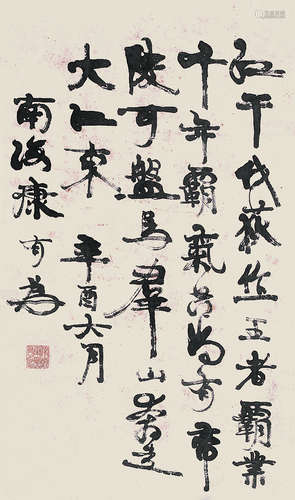 江干伐荻生王者霸業
千年霸氣尚有市
陵可盤馬群山奔走
大江東 辛酉六月
南海康有為